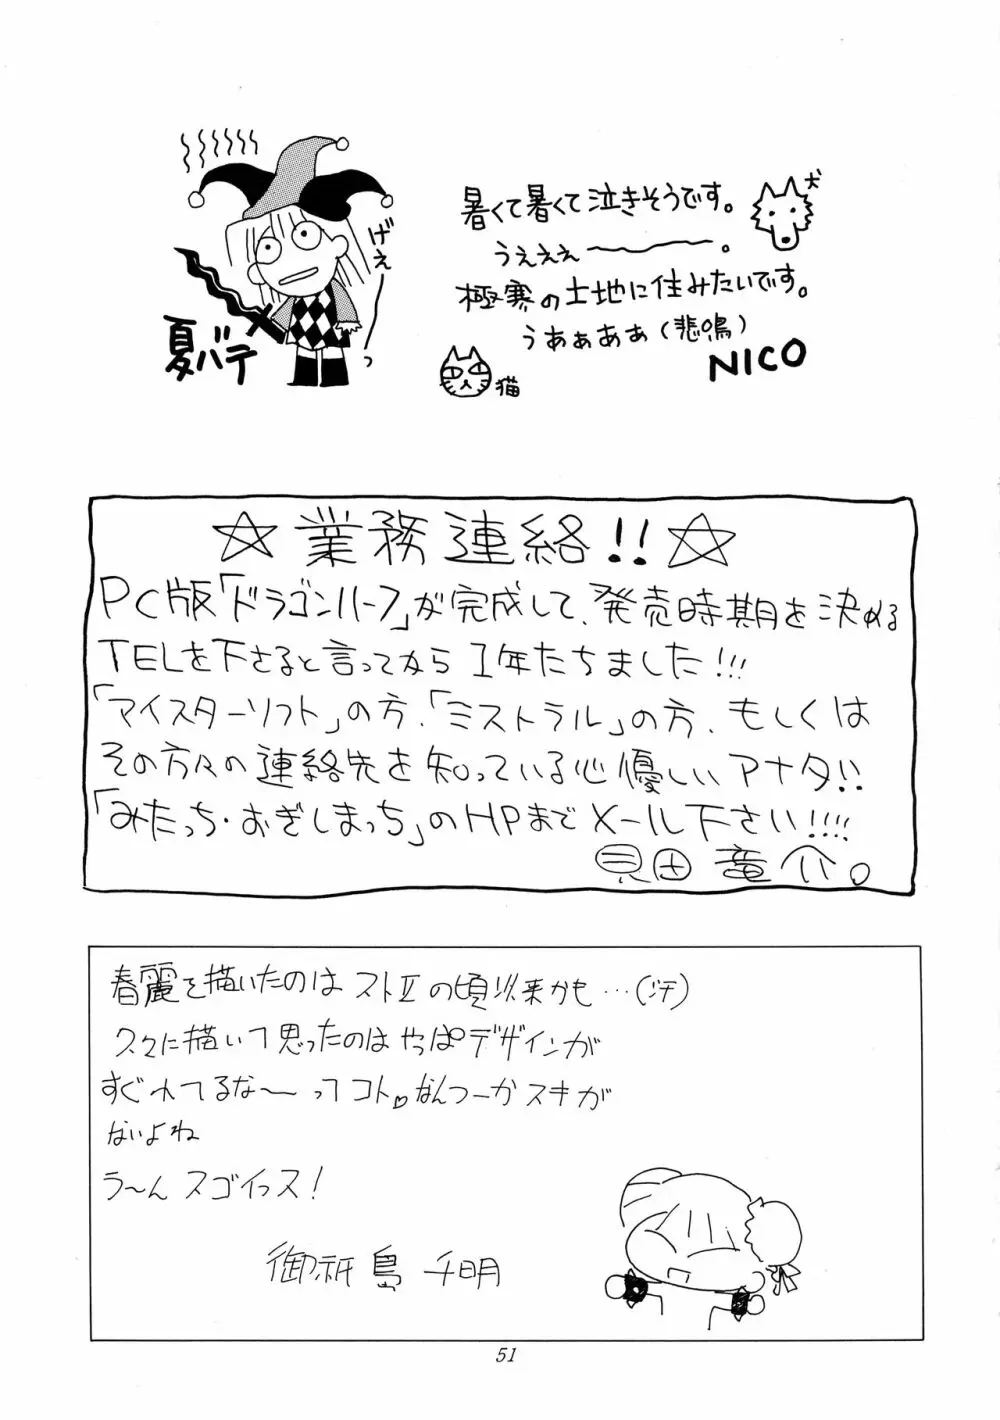 暑くて暑くて泣きそうです。
犬
うぇぇぇ〜。
極寒の土地に住みたいです。
うあぁあぁ(悲鳴)
NICO
猫
げぇーっ
夏バテ
☆業務連絡!!☆
PC版「ドラゴンハーフ」が完成して、発売時期を決める
TELを下さると言ってから1年たちました!!!
「マイスターソフト」の方、「ミストラル」の方、もしくは
その方々の連絡先を知っている心優しいアナタ!!
「みたっち・おぎしまっち」のHPまでメール下さい!!!!
見田竜介。
春麗を描いたのはストⅡの頃以来かも…(汗)
久々に描いて思ったのはやっぱデザインが
すぐれてるな〜ってコト。なんつーかスキが
ないよね
う〜んスゴイっス!
御祇島 千明
51